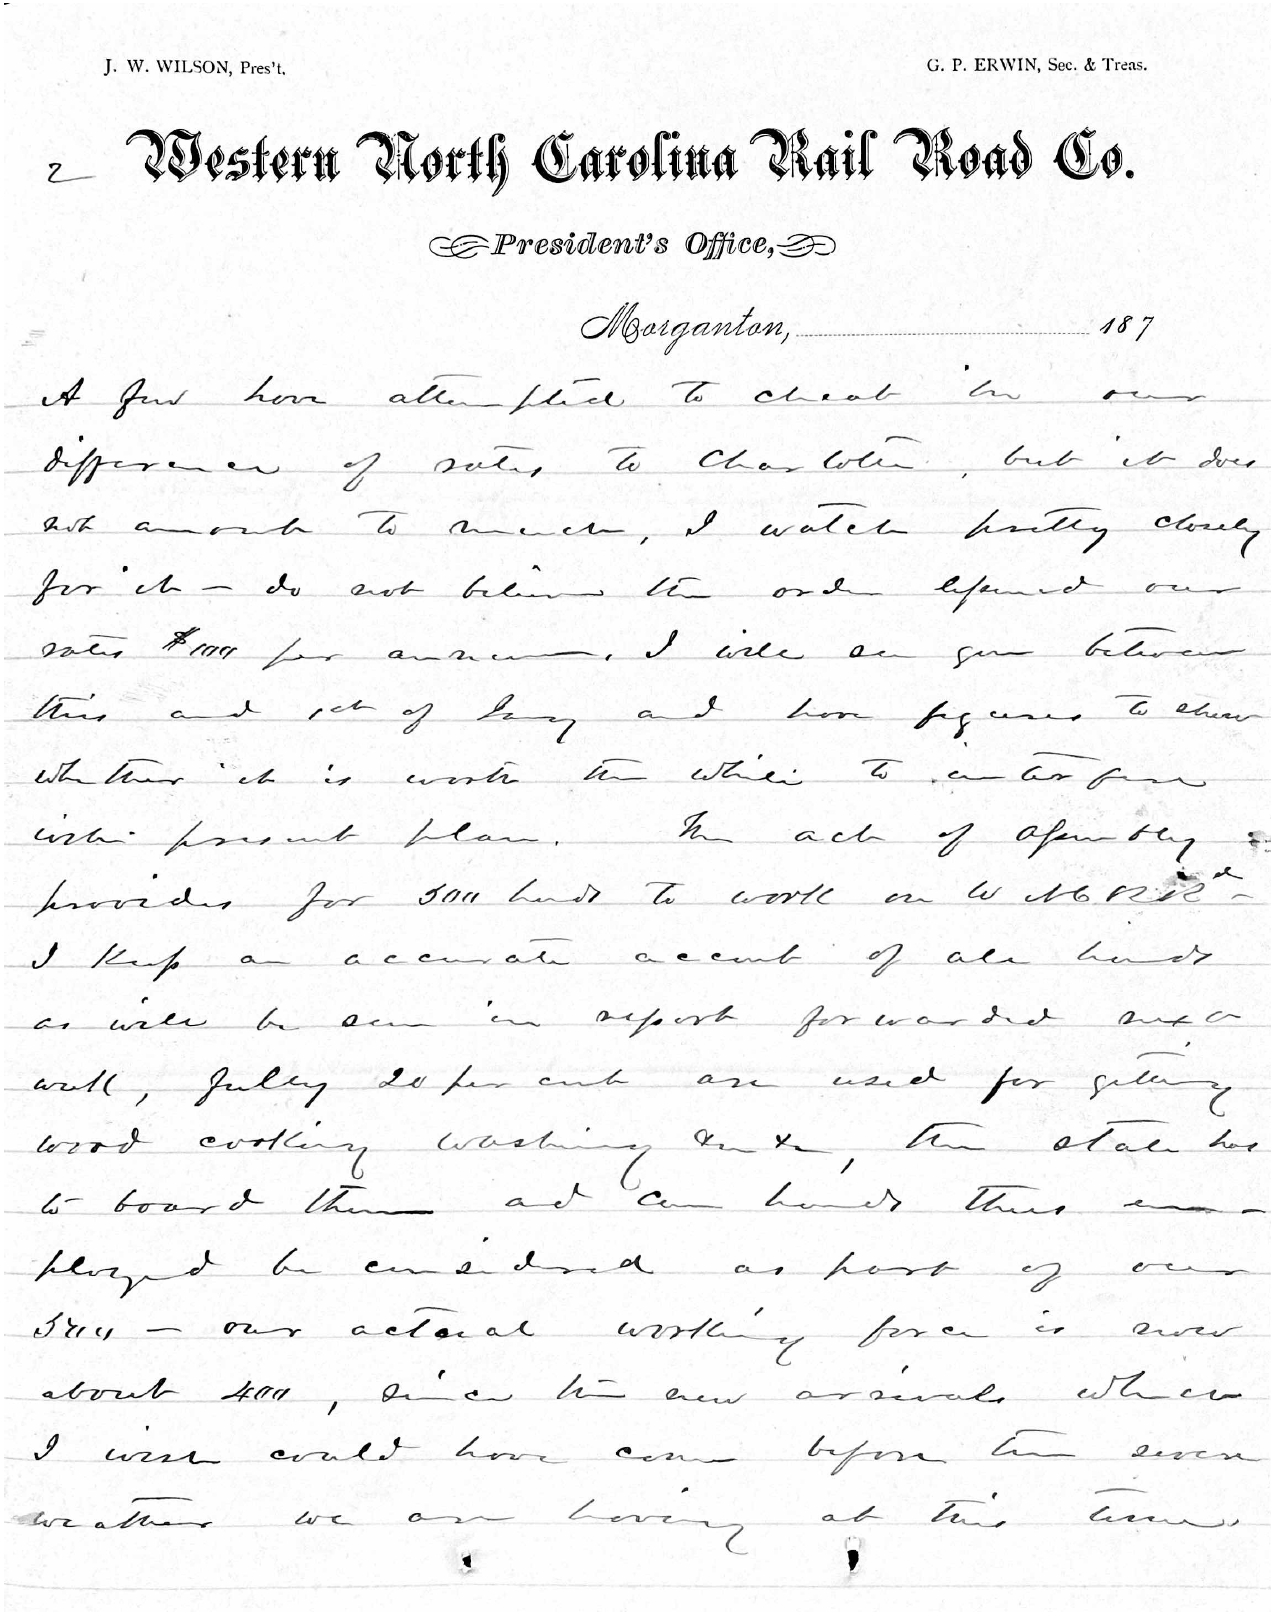 J. W. WILSON, Pres't. G. P. ERWIN, Sec. & Treas.
2 Western North Carolina Rail Road Co.
President's Office,
Morganton, 187
A few have attempted to cheat in our
difference of rates to Charlotte, but it does
not amount to much, I watch pretty closely
for it - do not believe the order lessened our
rates $100 per annum. I will see you between
this and 1st of Jany and have figures to show
whether it is worth the while to interfere
with present plan. The act of Assembly
provides for 500 hands to work on W N C R Rd -
I keep an accurate account of all hands
as will be seen in report forwarded next
week, fully 20 per cent are used for getting
wood cooking washing &c &c, the state has
to board them and can hands thus em-
ployed be considered as part of our
500 - our actual working force is now
about 400, since the new arrivals which
I wish could have come before the severe
weather we are having at this time.